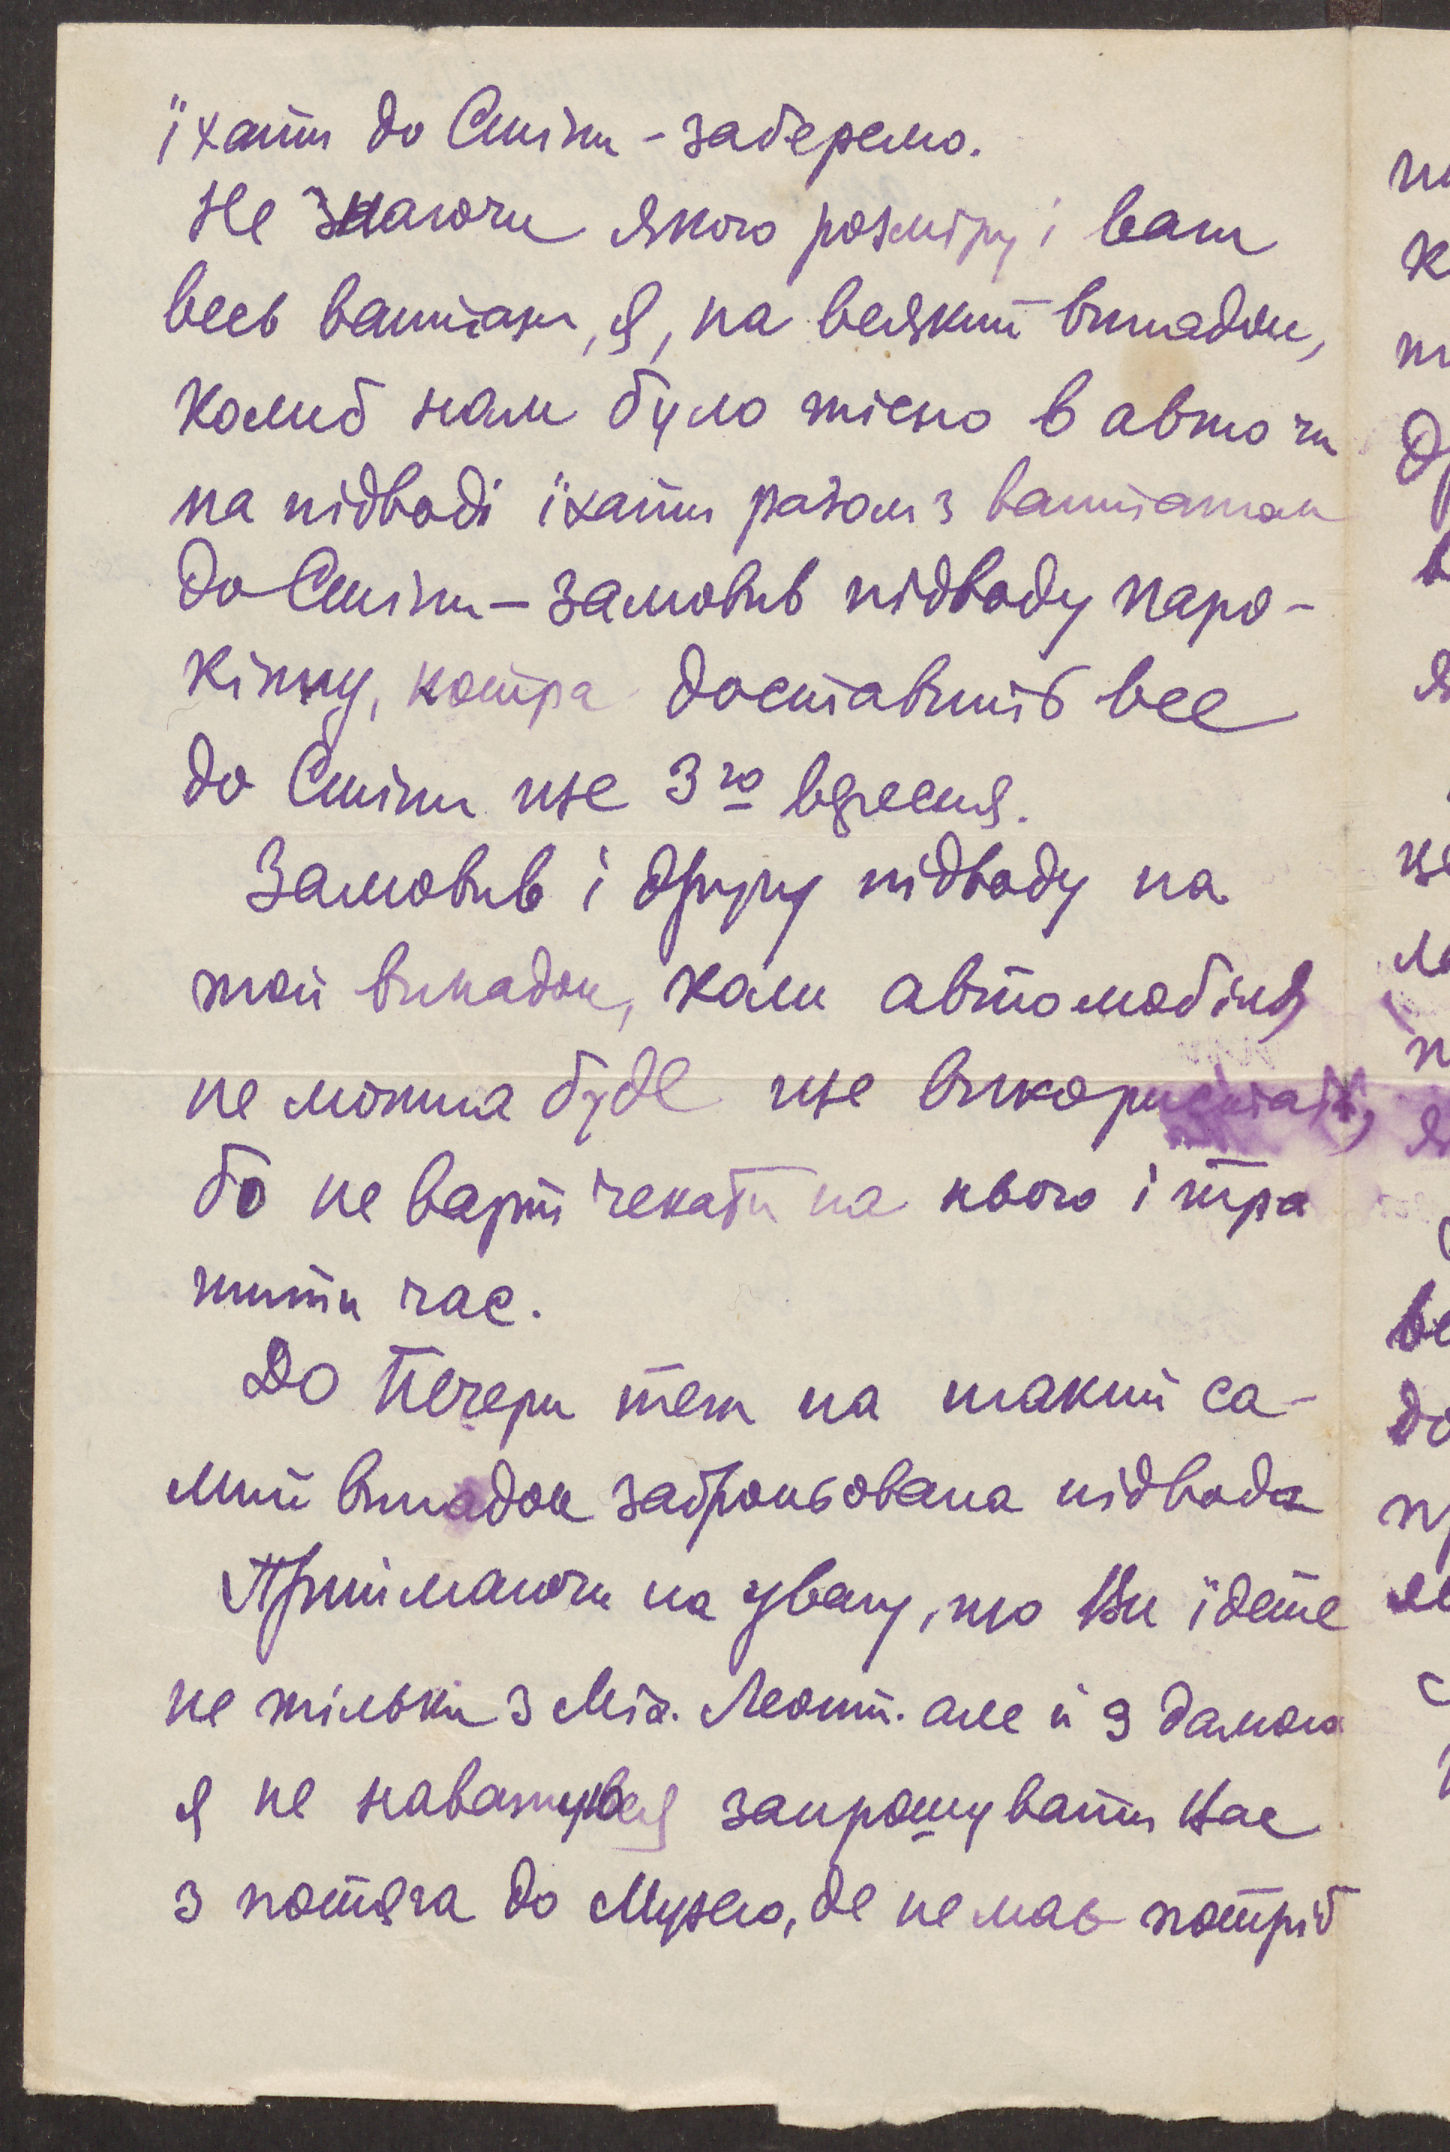 їхати до Стіни – заберемо.
Не знаючи якого розміру і ваги
весь вантаж, я, на всякий випадок,
колиб нам було тісно в авто чи
на підводі їхати разом з вантажом
до Стіни – замовив підводу паро-
кінну, котра доставить все
до Стіни вже 3го вересня.
Замовив і другу підводу на
той випадок, коли автомобіля
не можна буде вже використати,
бо не варт чекати на нього і тра
тити час.
До Печери теж на такий са-
мий випадок заброньована підвода
Приймаючи на увагу, що Ви їдете
не тільки з Мих. Леонт. але й з дамою
я не наважувався запрошувати Вас
з потяга до Музею, де немає потріб